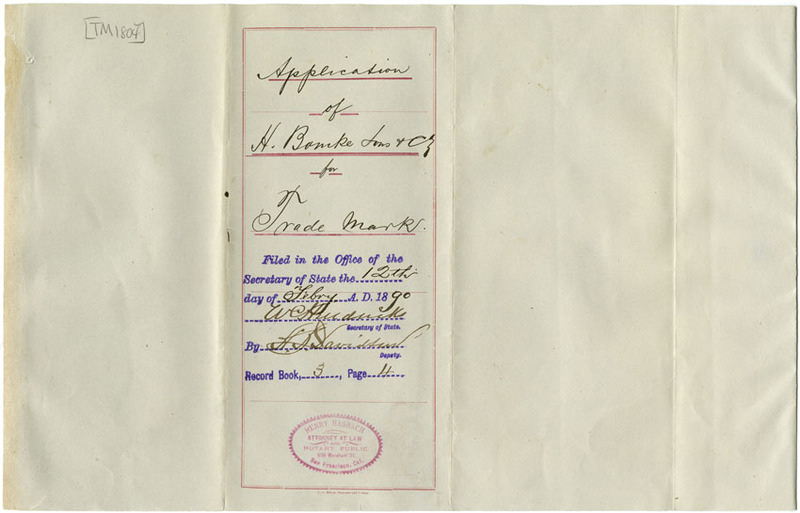 [TM1804]
Application
of
H. Bomke Sons & Co
for
Trade Mark.
Filed in the Office of the
Secretary of State the 12th
day of Febry A. D. 1890
W C Hendricks
Secretary of State.
By Davidson
Deputy.
Record Book, 3, Page 4
HENRY
ATTORNEY AT LAW
AND
NOTARY PUBLIC
San Francisco, Cal.